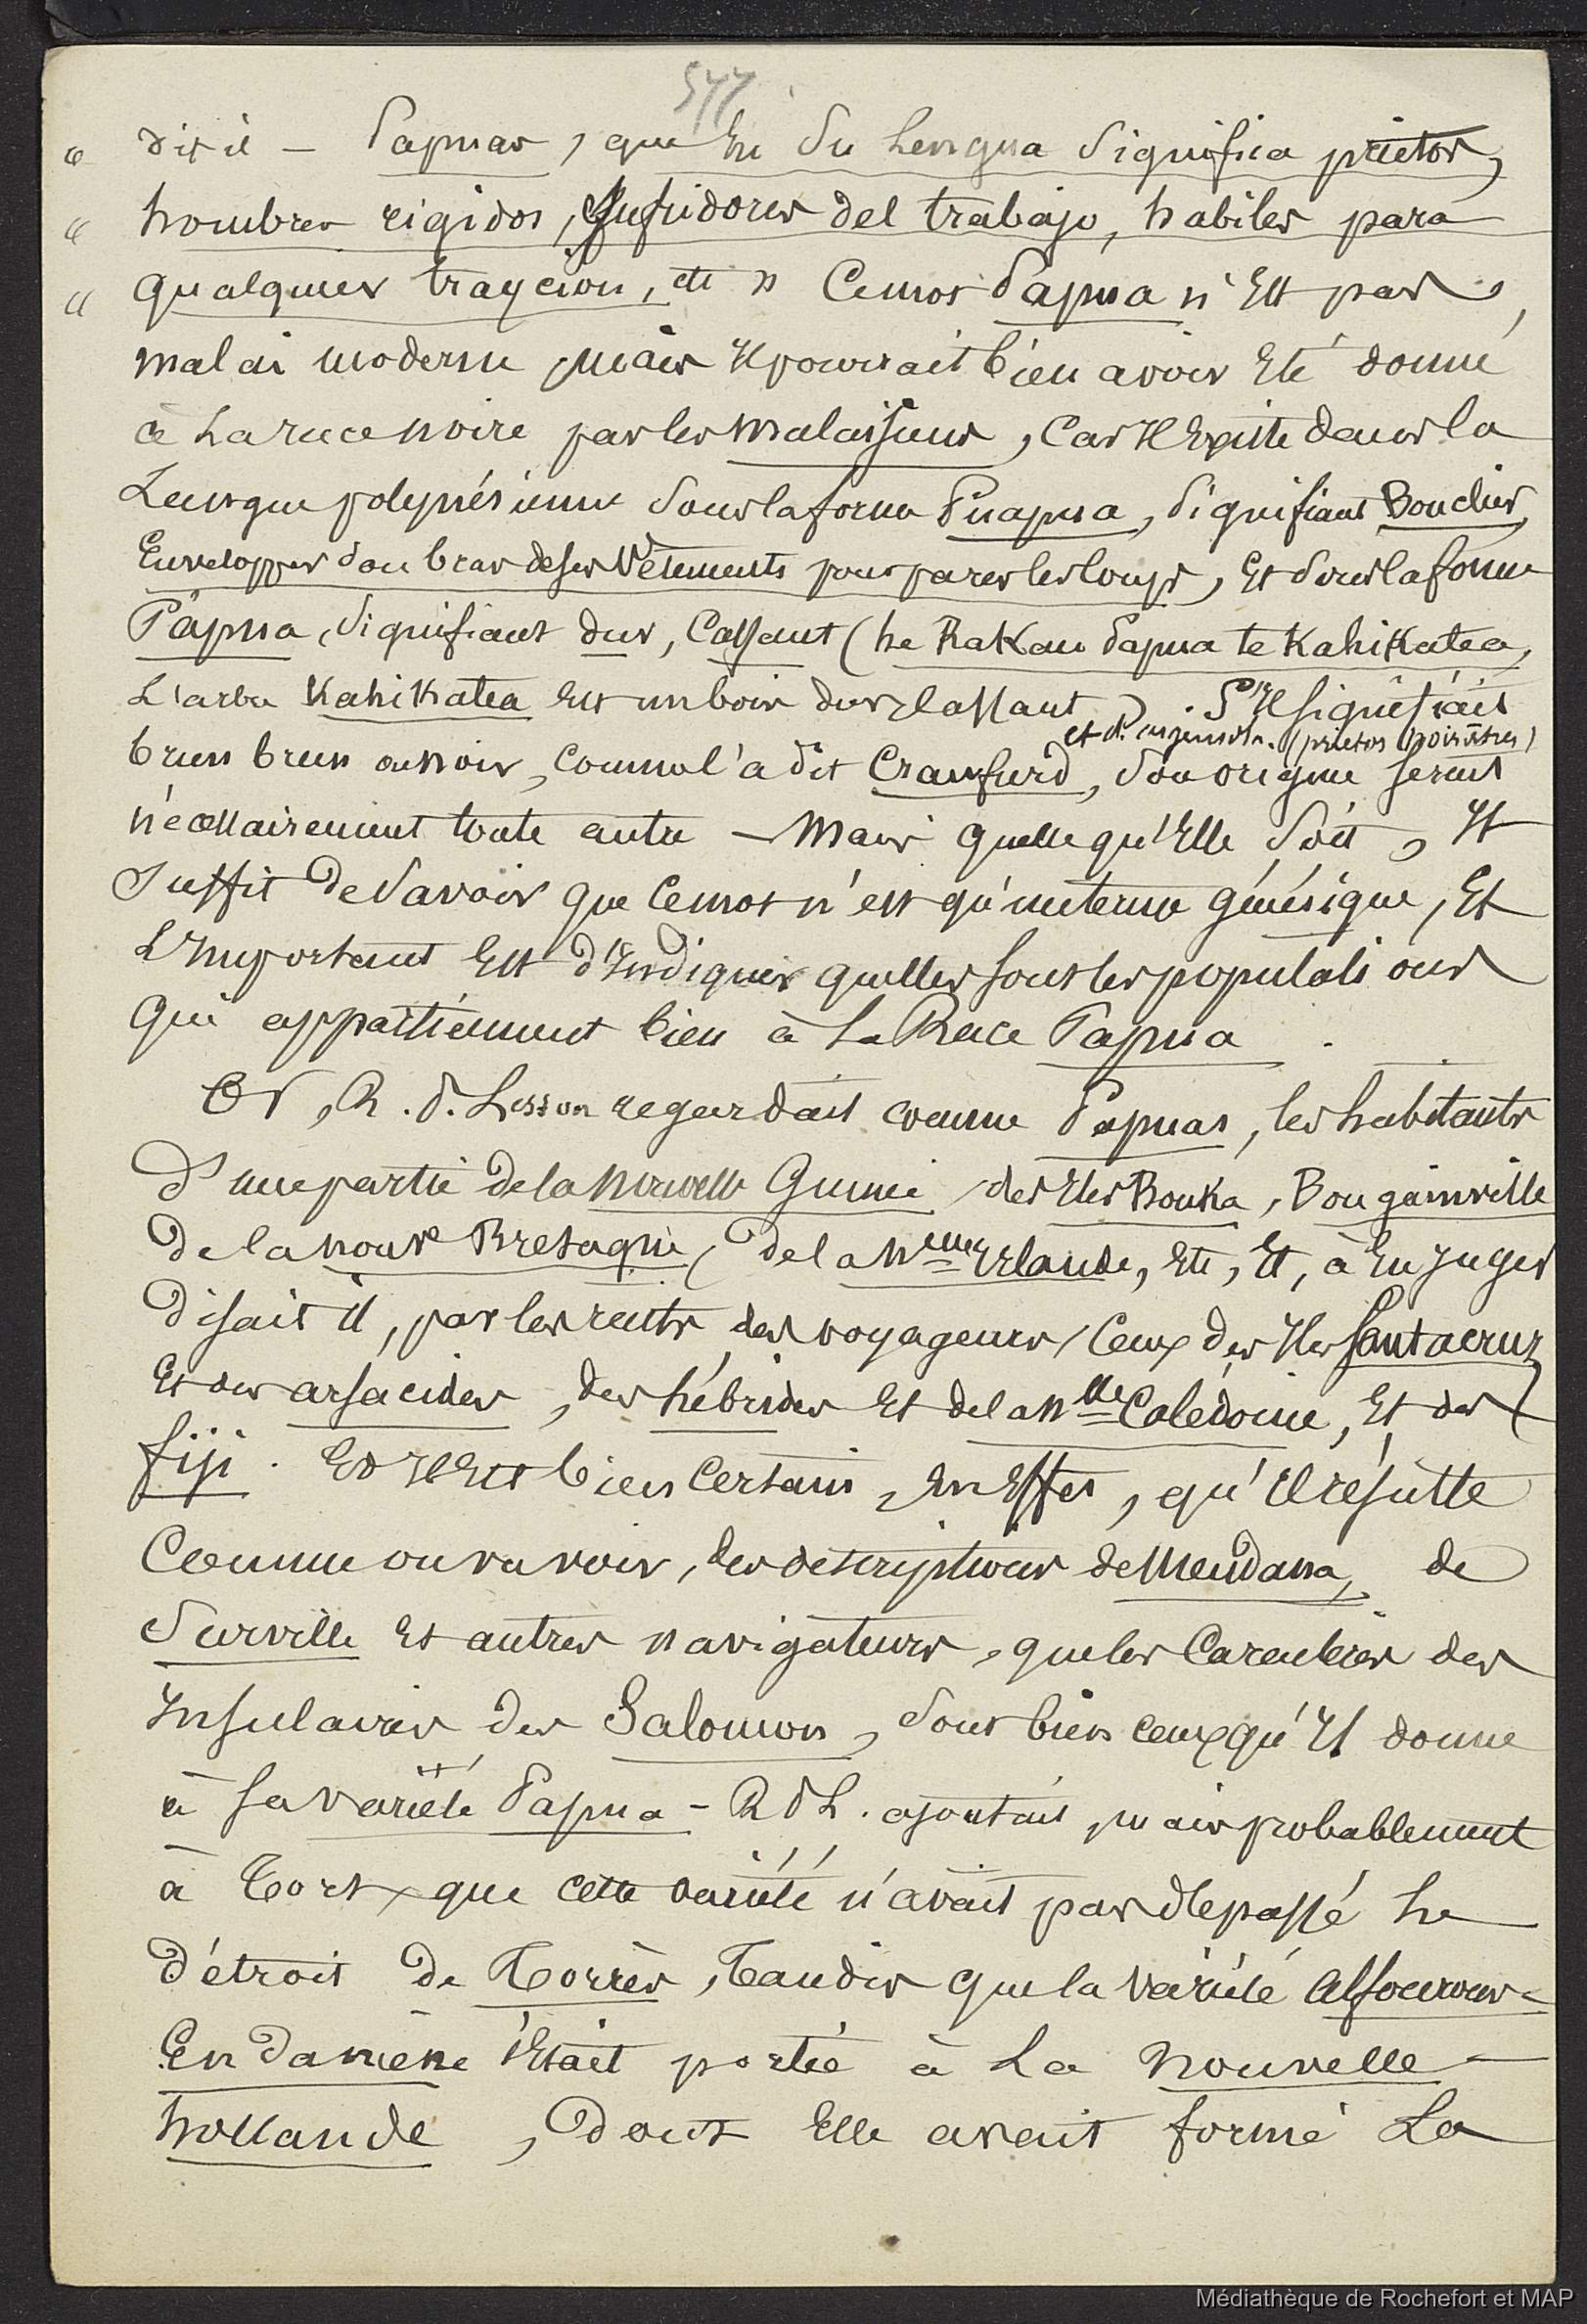 577
" dit il — Papuas, que En Su Lengua Significa prietos,
" hombres rigidos, Sufridores del trabajo, habiles para
" qualquier trayçion, etc » Ce mot Papua n'Est pas,
malai moderne, mais Il pourrait bien avoir Eté donné
à La race noire par les Malaisiens, Car Il Existe dans la
Langue polynésienne Sous la forme Puapua, Signifiant Bouclier,
Envelopper Son bras de ses Vêtements pour parer les coups, Et Sous la forme
Papua, Signifiant dur, Cassant (he Rakau Papua te Kahikatea,
L'arbre Kahikatea Est un bois dur, Cassant). S'Il signifiait
et d. (prietos noirâtres)
brun brun ou noir, Comme l'a dit Crawfurd, Son origine serait
nécessairement toute autre — Mais quelle qu'Elle Soit, Il
Suffit de Savoir que Ce mot n'est qu'un terme générique, Et
L'Important Est d'Indiquer quelles sont les populations
qui appartiennent bien à La Race Papua.
Or, R. P. Lesson regardait comme Papuas, les habitants
d'une partie de la Nouvelle Guinée, des Iles Bouka, Bougainville
de la nouve Bretagne, de la Neuve Irlande, Etc, Et, à En Juger
disait il, par les récits des voyageurs, Ceux des Iles Santa cruz
Et des arsacides, des hébrides Et de la Nlle Calédonie, Et des
fiji. Et Il Est bien Certain, En Effet, qu'Il résulte
Comme on va voir, des descriptions de Mendana, de
Surville Et autres navigateurs, que les Caractères des
Insulaires des Salomon, Sont bien ceux qu'Il donne
à sa variété Papua — R P L. ajoutait, mais probablement
à Tort, que cette variété n'avait pas dépassé Le
détroit de Torrès, Tandis que la Variété Alfourous-
Endamène s'Etait portée à La Nouvelle-
hollande, Dont Elle avait formé La
Médiathèque de Rochefort et MAP